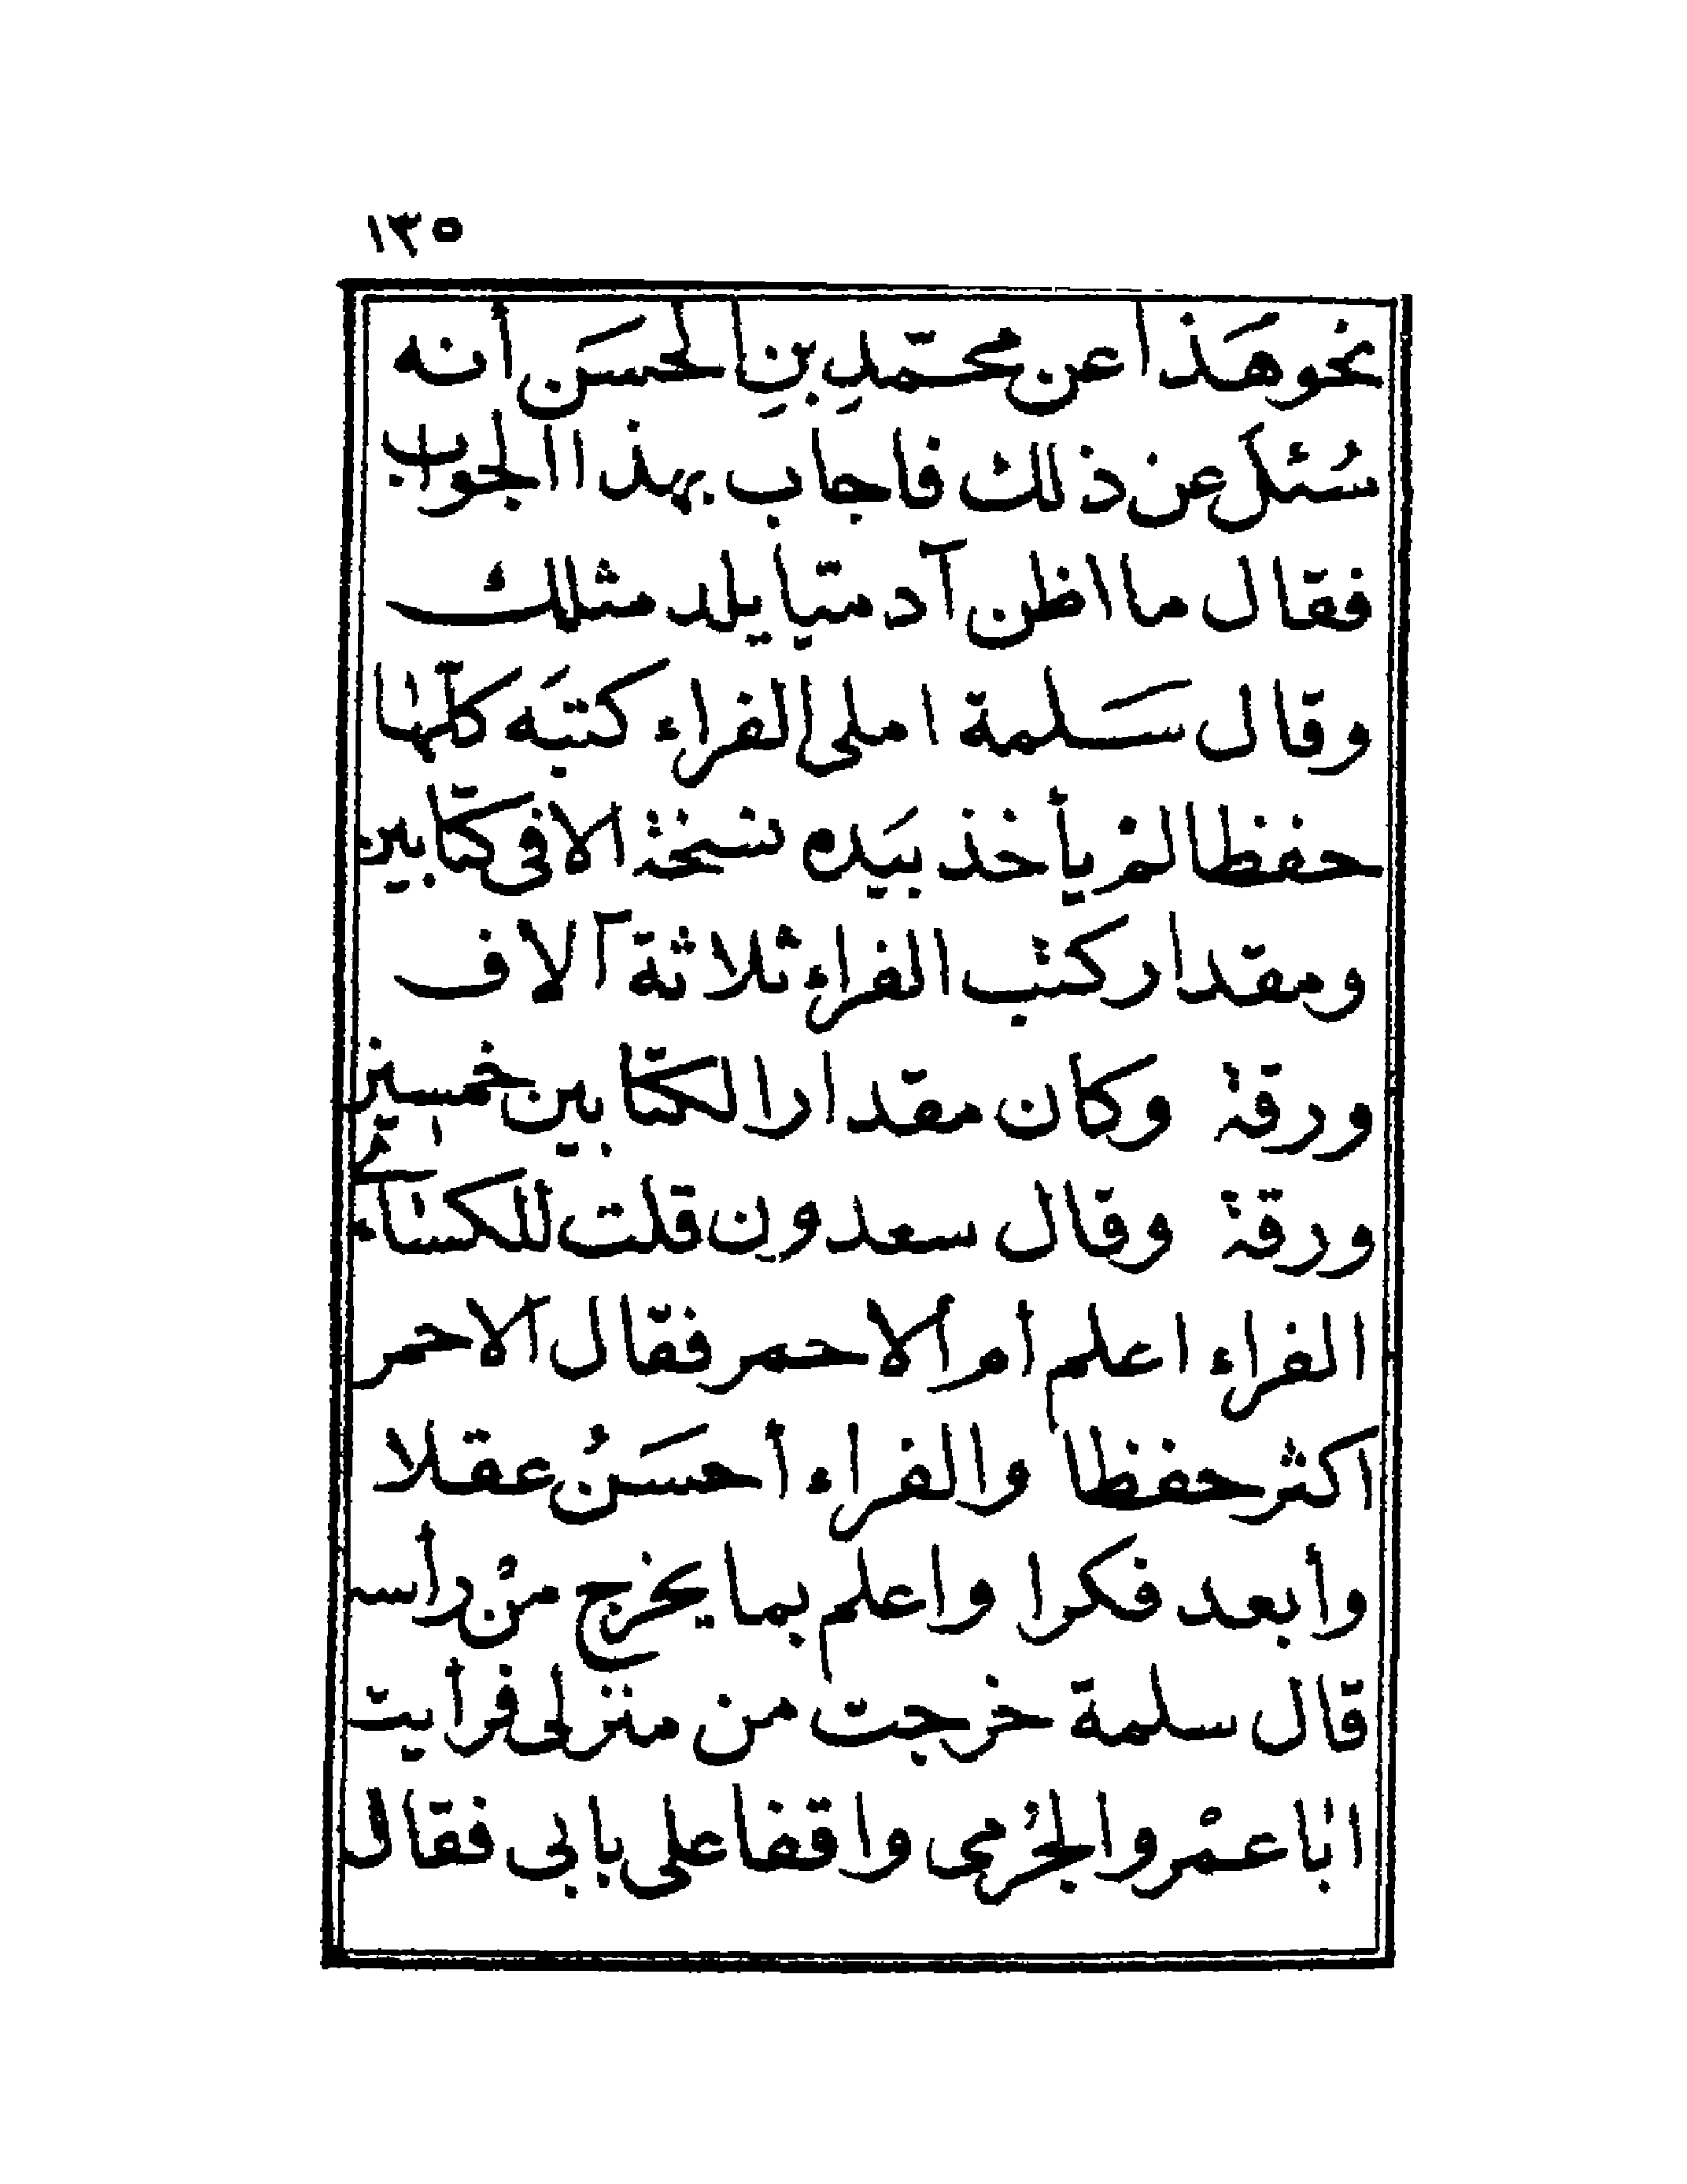 ١٣٥
نحو هَذا عن محمّدِ بنِ الحسَن أنه
سُئلَ عن ذلك فاجاب بهذا الجواب
فقال ما اظن آدميّا يلد مثلك
وقال سَلمة املى الفراء كتبَه كلّها
حفظا لمْ يأخذ بيَده نسخة الا فى كتابين
ومقدار كتب الفراء ثلاثة آلاف
ورقة وكان مقدار الكتابين خمسين
ورقة وقال سعدون قلت للكسائى
الفراء اعلم أم الاحمر فقال الاحمر
اكثر حفظا والفراء أحسَنُ عقلا
وأبعد فكرا واعلم بما يخرج منْ رأسه
قال سلمة خرجت من منزلى فرأيت
ابا عمْر والجرْمى واقفا على بابى فقال